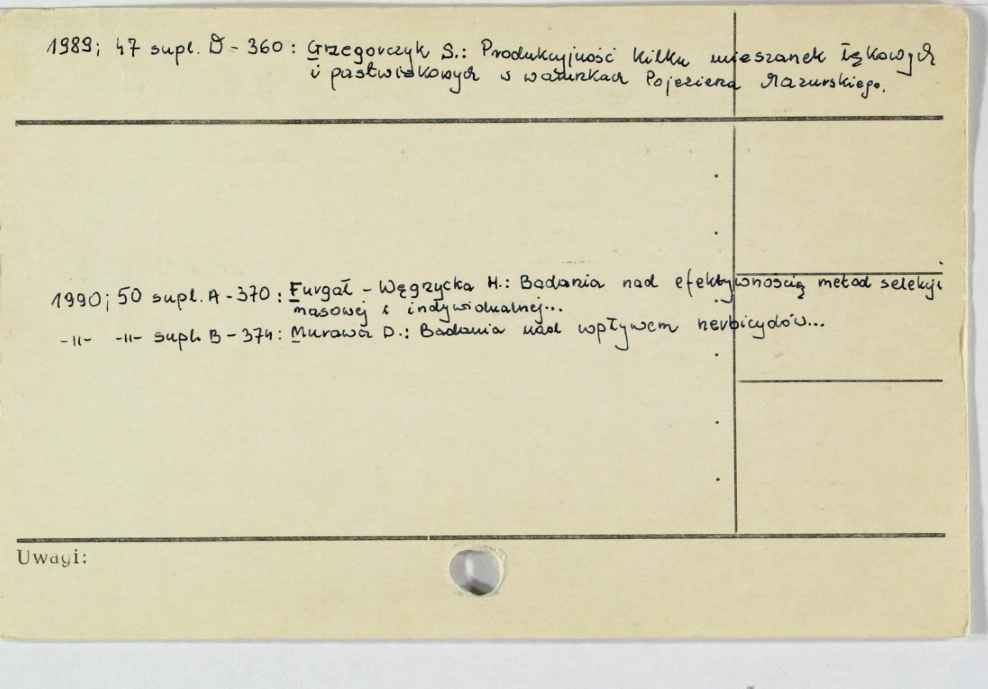 1989; 47 supl. D - 360 : Grzegorczyk S.: Produkcyjność kilku mieszanek łąkowych
i pastwiskowych w warunkach Pojezierza Mazurskiego.
1990; 50 supl. A - 370 : Furgał - Węgrzycka H.: Badania nad efektywnością metod selekcji
masowej i indywidualnej...
-11- -11- supl. B - 374 : Murawa D.: Badania nad wpływem herbicydów...
Uwagi: